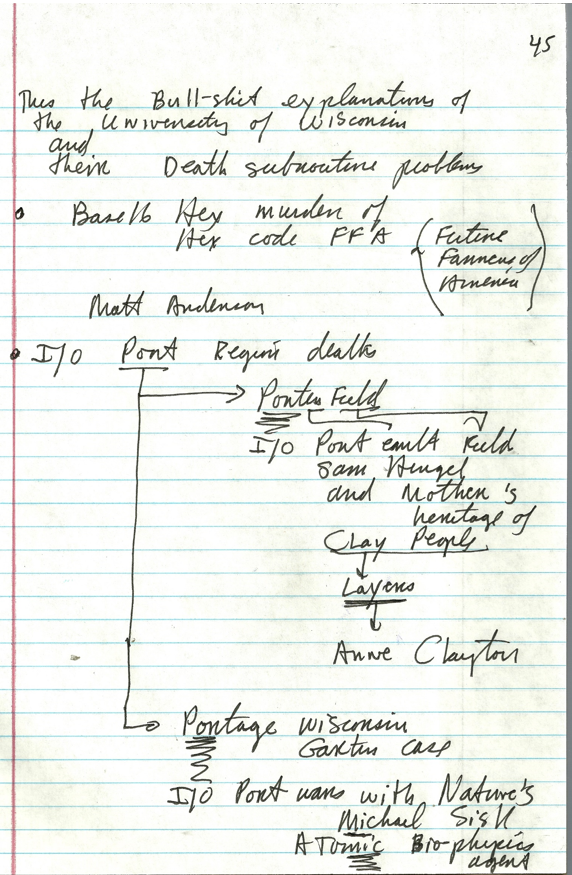 45
Thus the Bull-shit explanations of
the University of Wisconsin
and
their Death subroutine problems
• Base16 Hex murder of
Hex code FFA (Future
Farmers of
America)
Matt Anderson
• I/O Port Require deaths
Porter Field
I/O Port earth Field
Sam Hengel
and Mother's
heritage of
Clay People
Layers
Anne Clayton
Portage Wisconsin
Garten case
I/O Port wars with Nature's
Michael Sisk
ATomic Bio-physics
agent